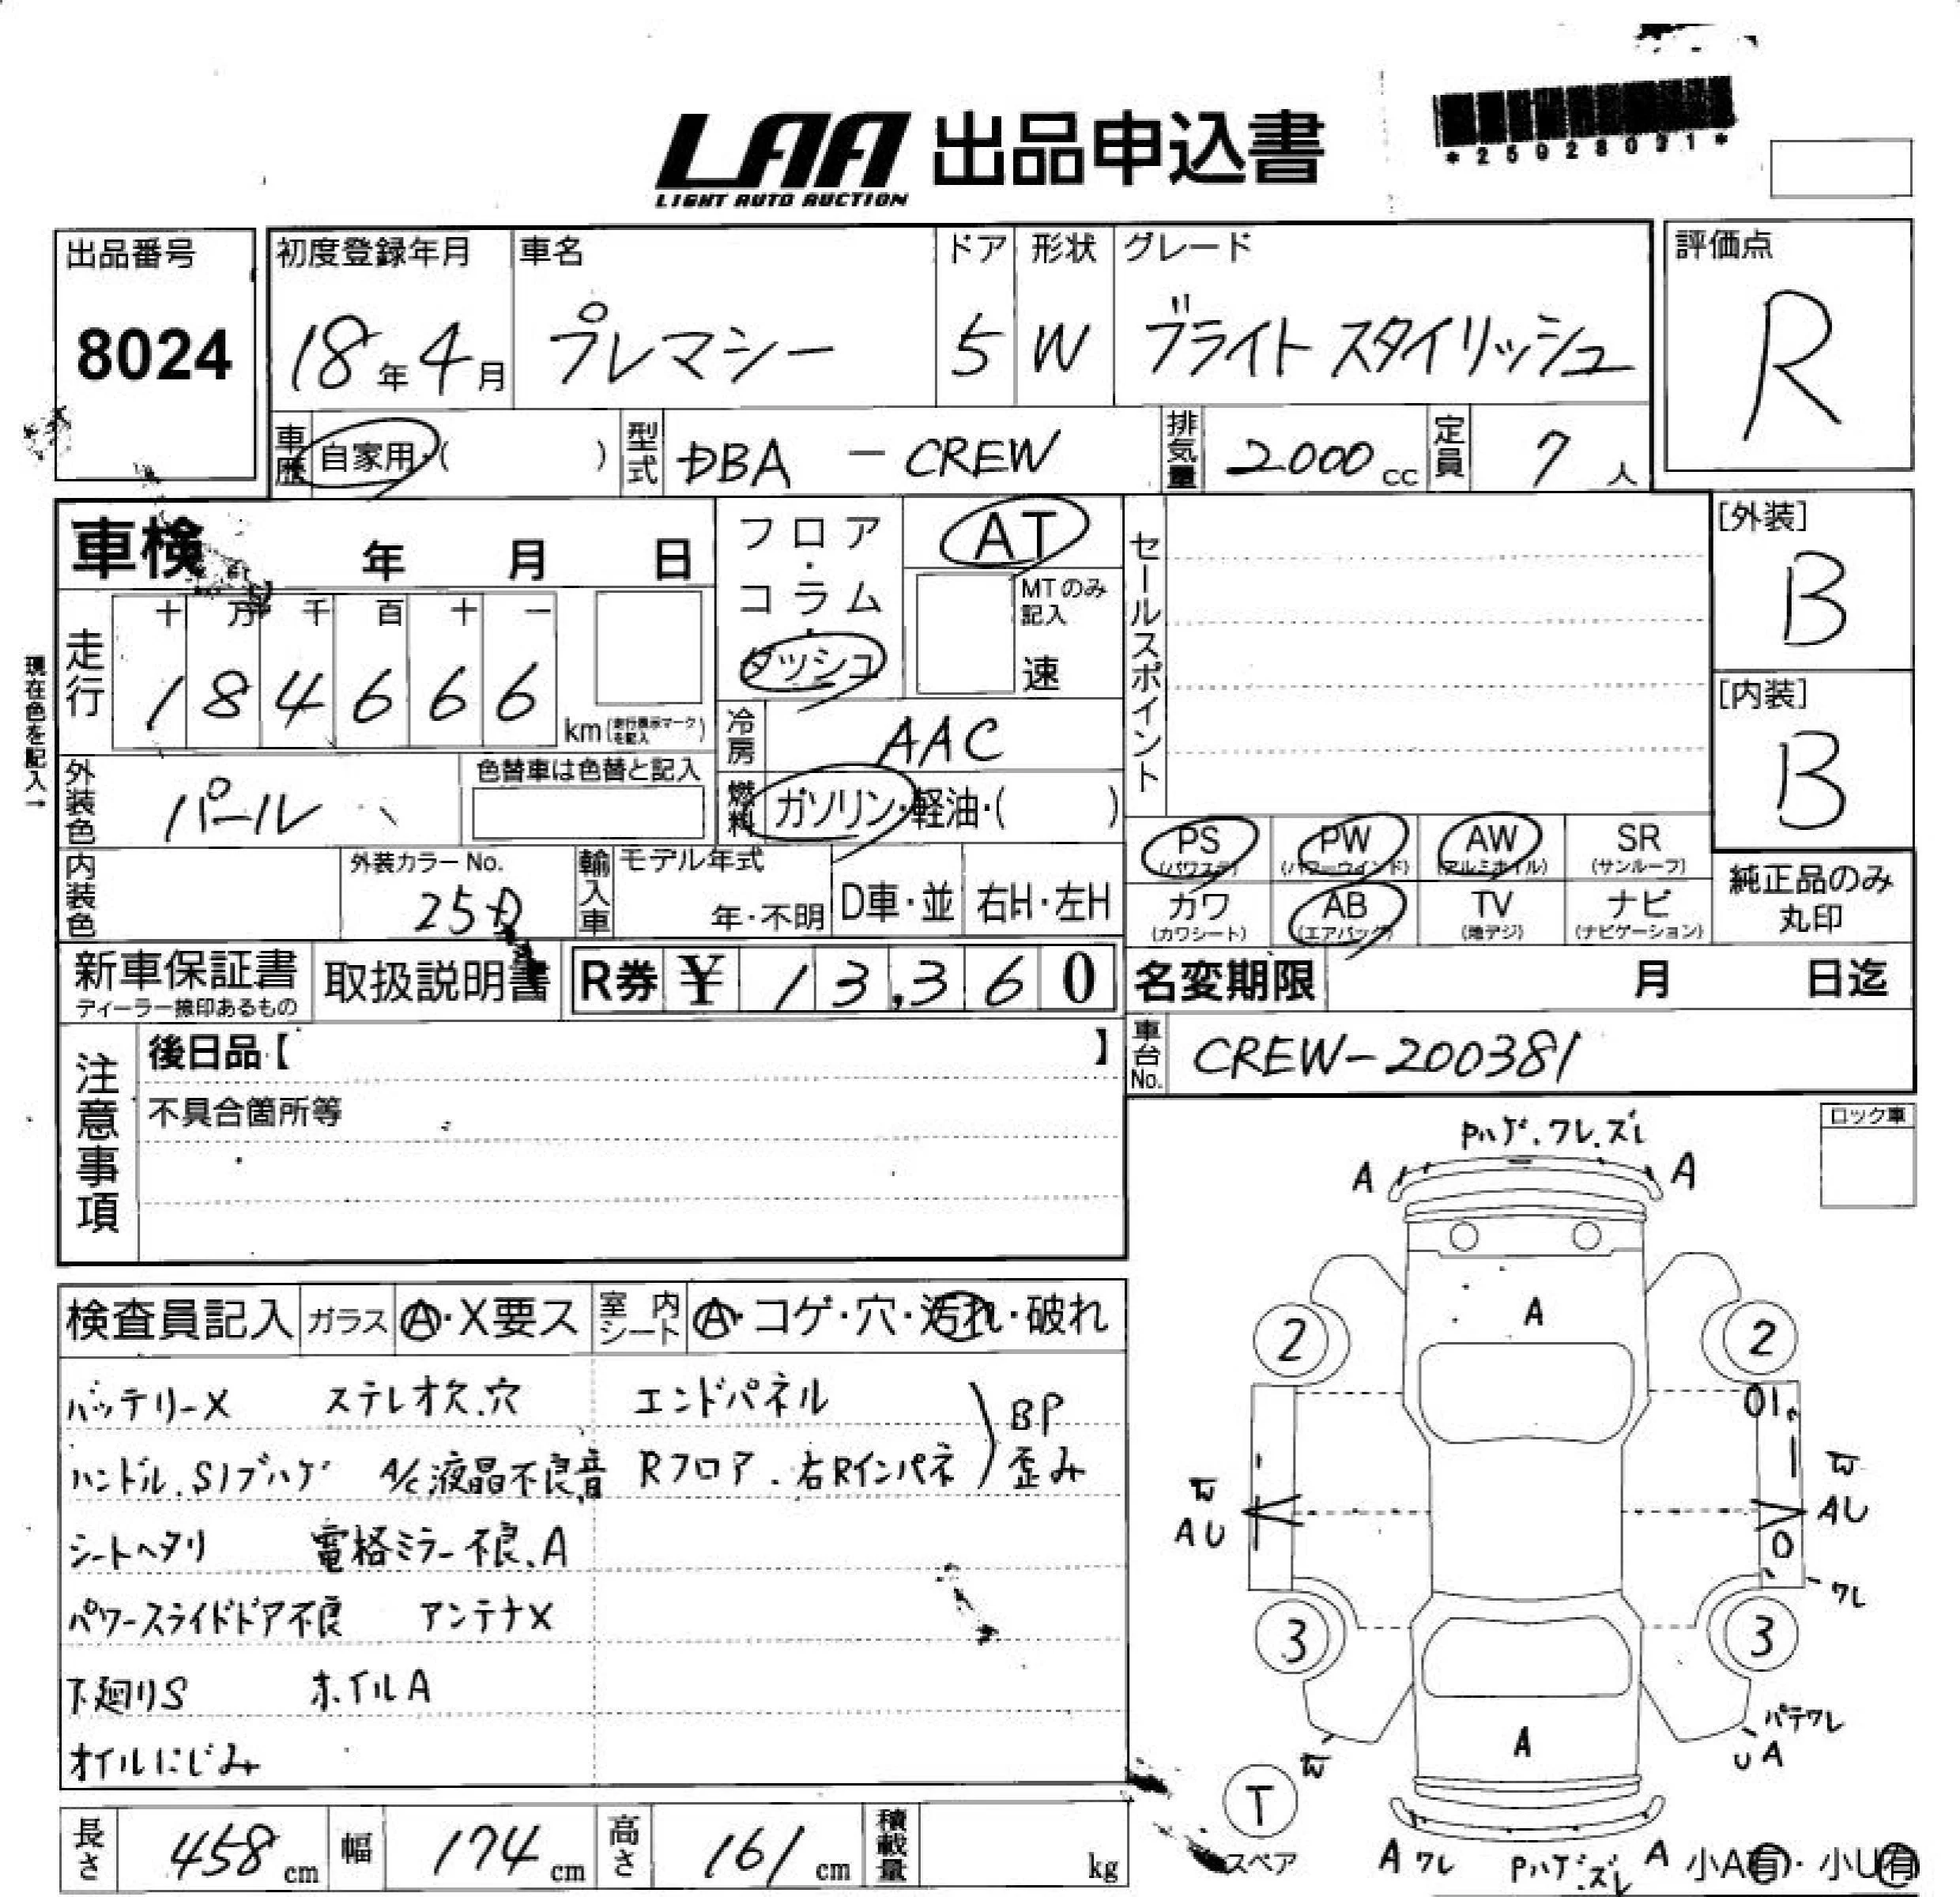 LAA 出品申込書
LIGHT AUTO AUCTION
出品番号
8024
初度登録年月
18年4月
車名
プレマシー
ドア
5
形状
W
グレード
ブライト スタイリッシュ
評価点
R
車歴 自家用・( )
型式 DBA - CREW
排気量 2000 cc
定員 7 人
車検 年 月 日
現在色を記入→
走行
十 万 千 百 十 一
1 8 4 6 6 6
km (走行表示マークを記入)
フロア・コラム・ダッシュ
AT
MTのみ記入
速
セールスポイント
[外装]
B
[内装]
B
外装色 パール
色替車は色替と記入
冷房 AAC
燃料 ガソリン・軽油・( )
内装色
外装カラーNo.
25D
輸入車
モデル年式
年・不明
D車・並
右H・左H
PS (パワステ)
PW (パワーウインド)
AW (アルミホイル)
SR (サンルーフ)
カワ (カワシート)
AB (エアバッグ)
TV (地デジ)
ナビ (ナビゲーション)
純正品のみ
丸印
新車保証書
取扱説明書
R券 ¥ 13,360
名変期限 月 日迄
車台No. CREW-200381
注意事項
後日品【 】
不具合箇所等
ロック車
検査員記入
ガラス A・X要ス
室内シート A・コゲ・穴・汚れ・破れ
バッテリーX ステレオ欠.穴 エンドパネル
ハンドル.Sノブハゲ A/C液晶不良,音 Rフロア.右Rインパネ
BP
歪み
シートヘタリ 電格ミラー不良.A
パワースライドドア不良 アンテナX
下廻りS ホイルA
オイルにじみ
長さ 458 cm
幅 174 cm
高さ 161 cm
積載量 kg
Pハゲ.ワレ.ズレ
A A
A
2 2
AU AU
ワレ
3 3
パテワレ
UA
A
T
スペア
A ワレ Pハゲ.ズレ A
小A有・小U有